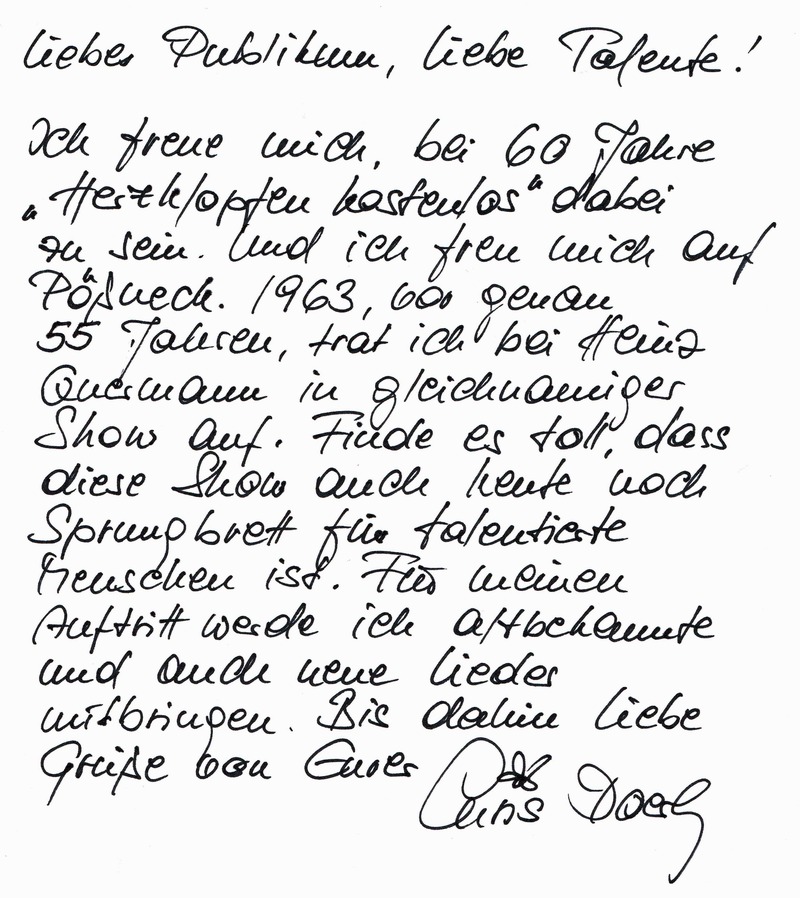 Liebes Publikum, liebe Talente!
Ich freue mich, bei 60 Jahre
„Herzklopfen kostenlos" dabei
zu sein. Und ich freu mich auf
Pößneck. 1963, vor genau
55 Jahren, trat ich bei Heinz
Quermann in gleichnamiger
Show auf. Finde es toll, dass
diese Show auch heute noch
Sprungbrett für talentierte
Menschen ist. Für meinen
Auftritt werde ich altbekannte
und auch neue Lieder
mitbringen. Bis dahin liebe
Grüße von Eurer
Chris Doerk